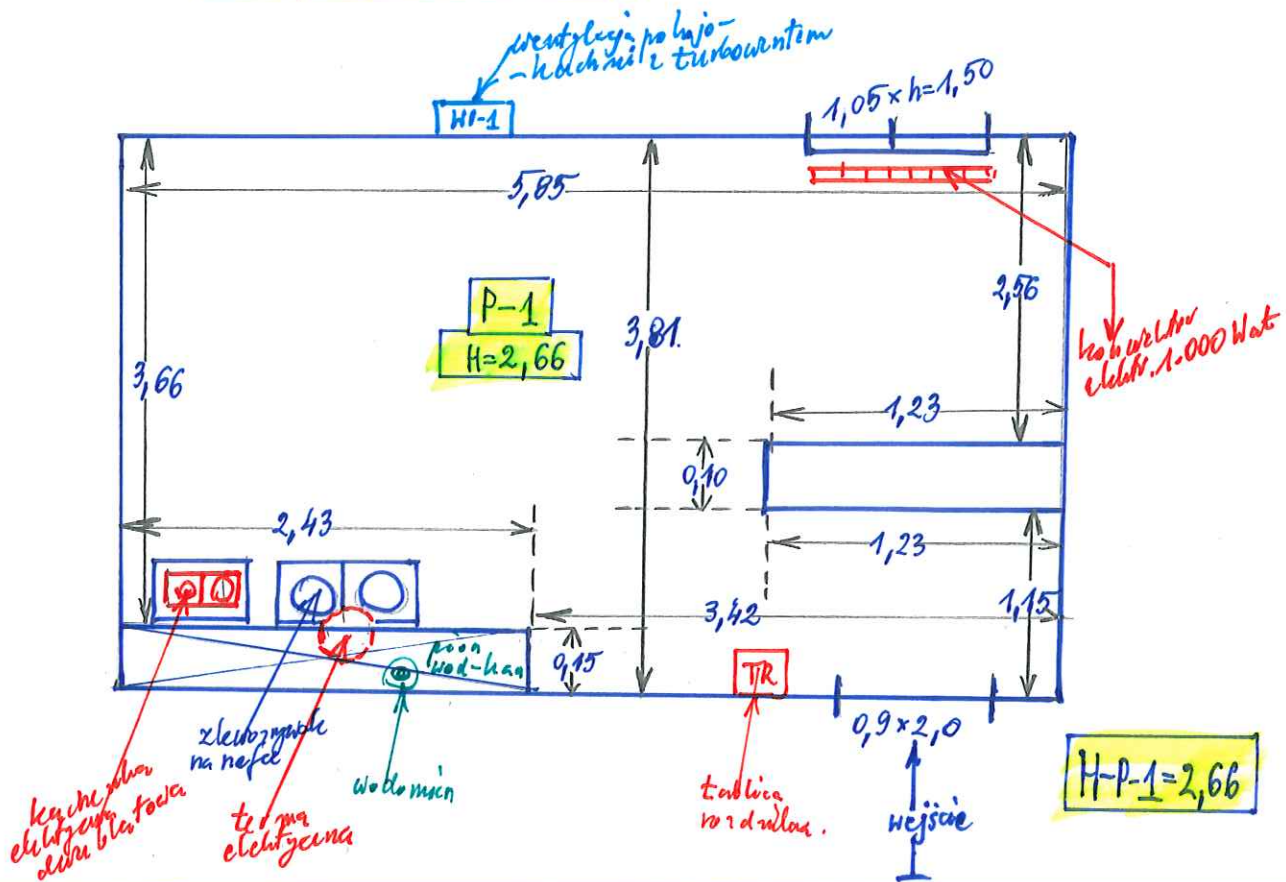 wentylacja pokojo-
-kuchni z turbowentem
W-1
1,05 × h=1,50
5,85
P-1
H=2,66
3,66
3,81
2,56
konwektor
elektr. 1.000 Wat
1,23
0,10
2,43
1,23
3,42
1,15
pion
wod-kan
0,15
TR
0,9 × 2,0
H-P-1=2,66
zlewozmywak
wodomierz
kuchenka
elektryczna
dwu blatowa
terma
elektryczna
tablica
rozdzielcza.
wejście